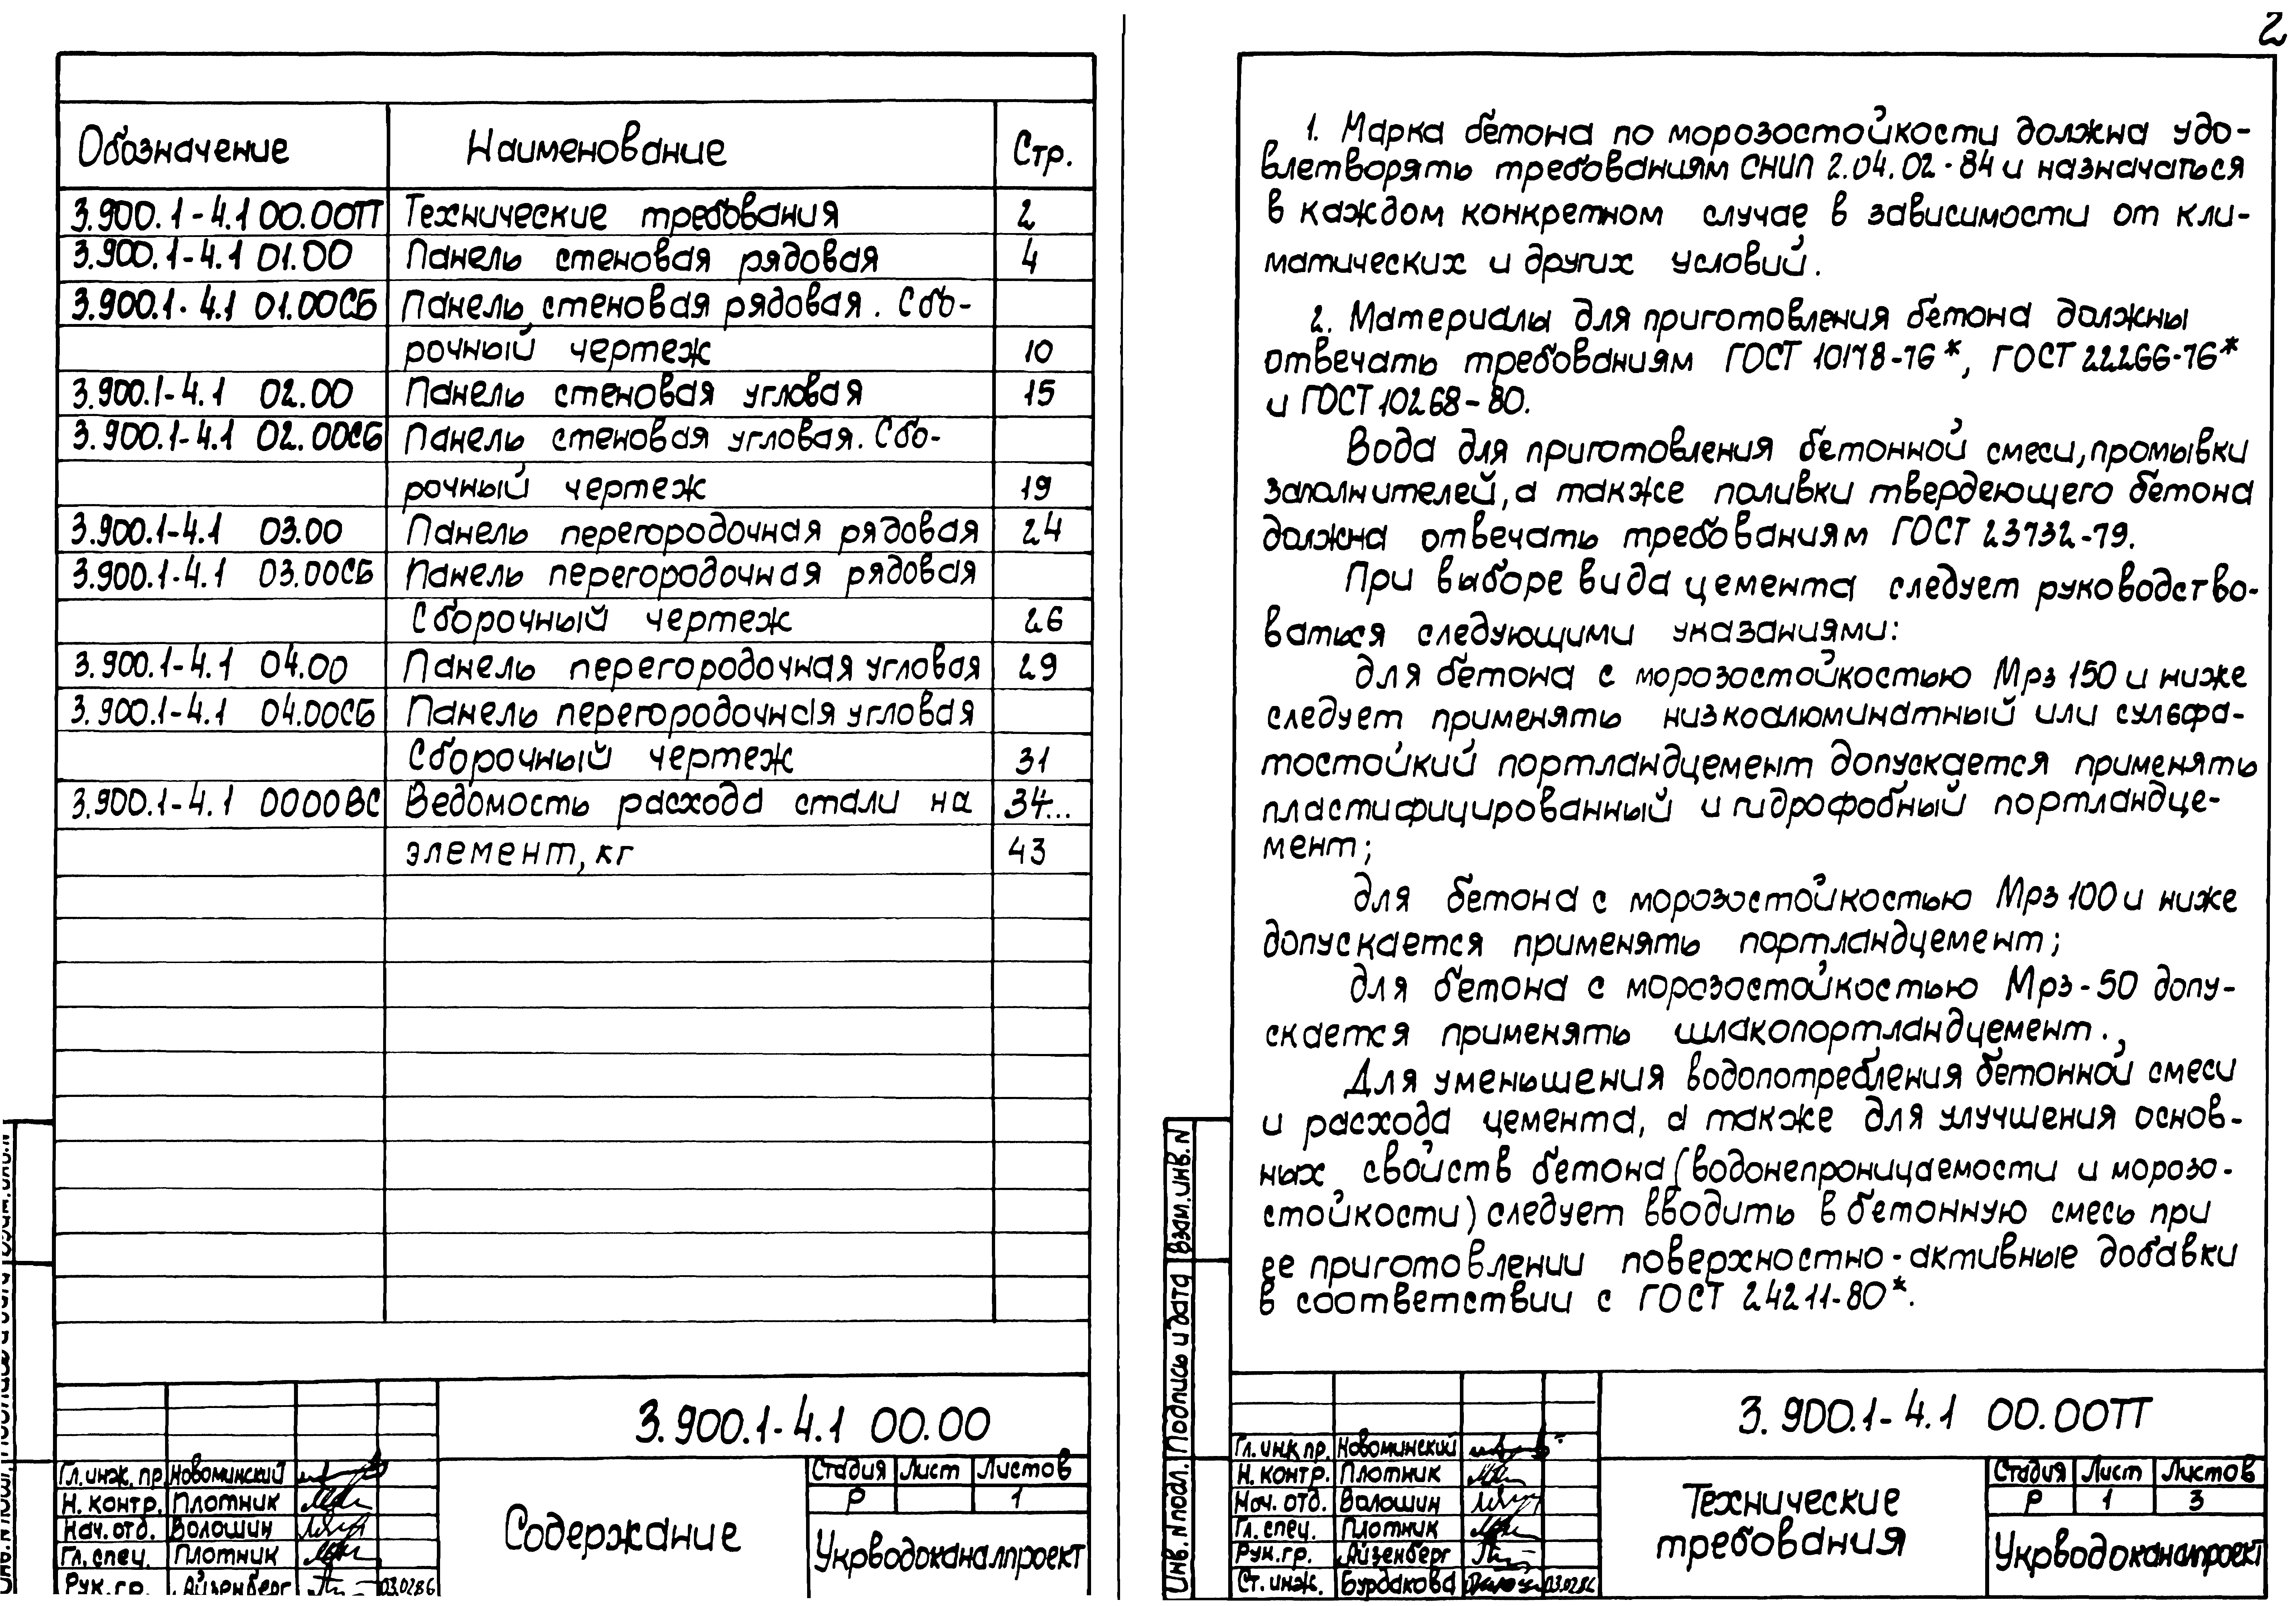 2
Обозначение Наименование Стр.
3.900.1-4.1 00.00ТТ Технические требования 2
3.900.1-4.1 01.00 Панель стеновая рядовая 4
3.900.1-4.1 01.00СБ Панель стеновая рядовая. Сбо-
рочный чертеж 10
3.900.1-4.1 02.00 Панель стеновая угловая 15
3.900.1-4.1 02.00СБ Панель стеновая угловая. Сбо-
рочный чертеж 19
3.900.1-4.1 03.00 Панель перегородочная рядовая 24
3.900.1-4.1 03.00СБ Панель перегородочная рядовая
Сборочный чертеж 26
3.900.1-4.1 04.00 Панель перегородочная угловая 29
3.900.1-4.1 04.00СБ Панель перегородочная угловая
Сборочный чертеж 31
3.900.1-4.1 0000ВС Ведомость расхода стали на 34...
элемент, кг 43
3.900.1-4.1 00.00
Гл. инж. пр. Новоминский
Н. контр. Плотник
Нач. отд. Волошин
Гл. спец. Плотник
Рук. гр. Айзенберг 03.02.86
Содержание
Стадия Лист Листов
Р 1
Укрводоканалпроект
1. Марка бетона по морозостойкости должна удо-
влетворять требованиям СНИП 2.04.02-84 и назначаться
в каждом конкретном случае в зависимости от кли-
матических и других условий.
2. Материалы для приготовления бетона должны
отвечать требованиям ГОСТ 10178-76*, ГОСТ 22266-76*
и ГОСТ 10268-80.
Вода для приготовления бетонной смеси, промывки
заполнителей, а также поливки твердеющего бетона
должна отвечать требованиям ГОСТ 23732-79.
При выборе вида цемента следует руководство-
ваться следующими указаниями:
для бетона с морозостойкостью Мрз 150 и ниже
следует применять низкоалюминатный или сульфа-
тостойкий портландцемент допускается применять
пластифицированный и гидрофобный портландце-
мент;
для бетона с морозостойкостью Мрз 100 и ниже
допускается применять портландцемент;
для бетона с морозостойкостью Мрз-50 допу-
скается применять шлакопортландцемент.
Для уменьшения водопотребления бетонной смеси
и расхода цемента, а также для улучшения основ-
ных свойств бетона (водонепроницаемости и морозо-
стойкости) следует вводить в бетонную смесь при
ее приготовлении поверхностно-активные добавки
в соответствии с ГОСТ 24211-80*.
Взам. инв. N
Подпись и дата
Инв. N подл.
3.900.1-4.1 00.00ТТ
Гл. инж пр. Новоминский
Н. контр. Плотник
Нач. отд. Волошин
Гл. спец. Плотник
Рук. гр. Айзенберг
Ст. инж. Бурдакова 03.02.86
Технические
требования
Стадия Лист Листов
Р 1 3
Укрводоканалпроект